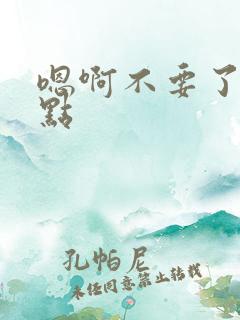 嗯啊不要了
點
孔帕尼
未经同意禁止转载